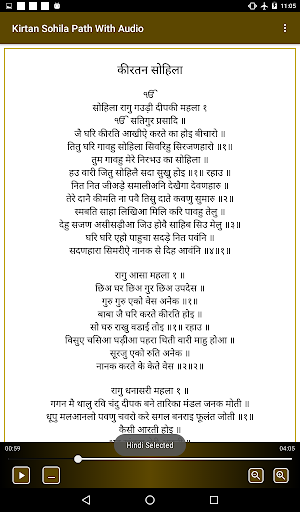 11:05
Kirtan Sohila Path With Audio
कीरतन सोहिला
ੴ
सोहिला रागु गउड़ी दीपकी महला १
ੴ सतिगुर प्रसादि ॥
जै घरि कीरति आखीऐ करते का होइ बीचारो ॥
तितु घरि गावहु सोहिला सिवरिहु सिरजणहारो ॥१॥
तुम गावहु मेरे निरभउ का सोहिला ॥
हउ वारी जितु सोहिलै सदा सुखु होइ ॥१॥ रहाउ ॥
नित नित जीअड़े समालीअनि देखैगा देवणहारु ॥
तेरे दानै कीमति ना पवै तिसु दाते कवणु सुमारु ॥२॥
स्मबति साहा लिखिआ मिलि करि पावहु तेलु ॥
देहु सजण असीसड़ीआ जिउ होवै साहिब सिउ मेलु ॥३॥
घरि घरि एहो पाहुचा सदड़े नित पवंनि ॥
सदणहारा सिमरीऐ नानक से दिह आवंनि ॥४॥१॥
रागु आसा महला १ ॥
छिअ घर छिअ गुर छिअ उपदेस ॥
गुरु गुरु एको वेस अनेक ॥१॥
बाबा जै घरि करते कीरति होइ ॥
सो घरु राखु वडाई तोइ ॥१॥ रहाउ ॥
विसुए चसिआ घड़ीआ पहरा थिती वारी माहु होआ ॥
सूरजु एको रुति अनेक ॥
नानक करते के केते वेस ॥२॥२॥
रागु धनासरी महला १ ॥
गगन मै थालु रवि चंदु दीपक बने तारिका मंडल जनक मोती ॥
धूपु मलआनलो पवणु चवरो करे सगल बनराइ फूलंत जोती ॥१॥
कैसी आरती होइ ॥
00:59
Hindi Selected
04:05